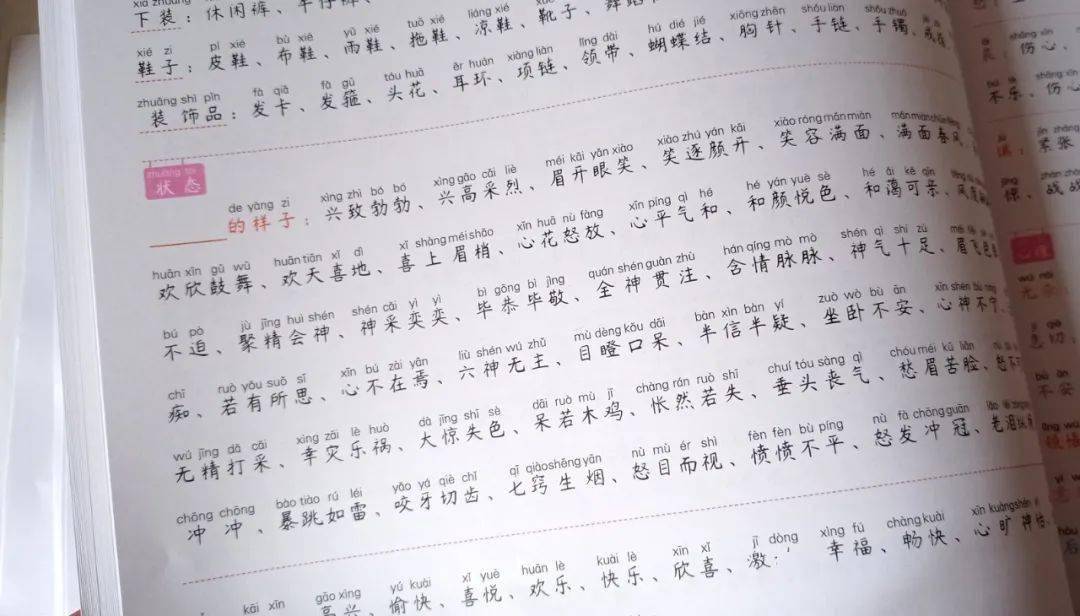 xià zhuāng
下装：休闲裤、牛仔裤、
xié zi pí xié bù xié yǔ xié tuō xié liáng xié xuē zi
鞋子：皮鞋、布鞋、雨鞋、拖鞋、凉鞋、靴子、
zhuāng shì pǐn fà qiǎ fà gū tóu huā ěr huán xiàng liàn lǐng dài hú dié jié xiōng zhēn shǒu liàn shǒu zhuó
装饰品：发卡、发箍、头花、耳环、项链、领带、蝴蝶结、胸针、手链、手镯、
zhuàng tài
状态
de yàng zi xìng zhì bó bó xìng gāo cǎi liè méi kāi yǎn xiào xiào zhú yán kāi xiào róng mǎn miàn mǎn miàn chūn fēng
的样子：兴致勃勃、兴高采烈、眉开眼笑、笑逐颜开、笑容满面、满面春风、
huān xīn gǔ wǔ huān tiān xǐ dì xǐ shàng méi shāo xīn huā nù fàng xīn píng qì hé hé yán yuè sè hé ǎi kě qīn
欢欣鼓舞、欢天喜地、喜上眉梢、心花怒放、心平气和、和颜悦色、和蔼可亲、
bú pò jù jīng huì shén shén cǎi yì yì bì gōng bì jìng quán shén guàn zhù hán qíng mò mò shén qì shí zú
不迫、聚精会神、神采奕奕、毕恭毕敬、全神贯注、含情脉脉、神气十足、眉飞色
chī ruò yǒu suǒ sī xīn bú zài yān liù shén wú zhǔ mù dèng kǒu dāi bàn xìn bàn yí zuò wò bù ān xīn shén bù níng
痴、若有所思、心不在焉、六神无主、目瞪口呆、半信半疑、坐卧不安、心神不宁、
wú jīng dǎ cǎi xìng zāi lè huò dà jīng shī sè dāi ruò mù jī chàng rán ruò shī chuí tóu sàng qì chóu méi kǔ liǎn
无精打采、幸灾乐祸、大惊失色、呆若木鸡、怅然若失、垂头丧气、愁眉苦脸、
chōng chōng bào tiào rú léi yǎo yá qiè chǐ qī qiào shēng yān nù mù ér shì fèn fèn bù píng nù fà chōng guān
冲冲、暴跳如雷、咬牙切齿、七窍生烟、怒目而视、愤愤不平、怒发冲冠、老泪
kāi xīn gāo xìng yú kuài xǐ yuè huān lè kuài lè xīn xǐ jī dòng xìng fú chàng kuài xīn kuàng shén
高兴、愉快、喜悦、欢乐、快乐、欣喜、激 幸福、畅快、心旷神怡
shāng xīn
伤心、
不乐、伤心
jǐn zhāng
紧张
战战
不安